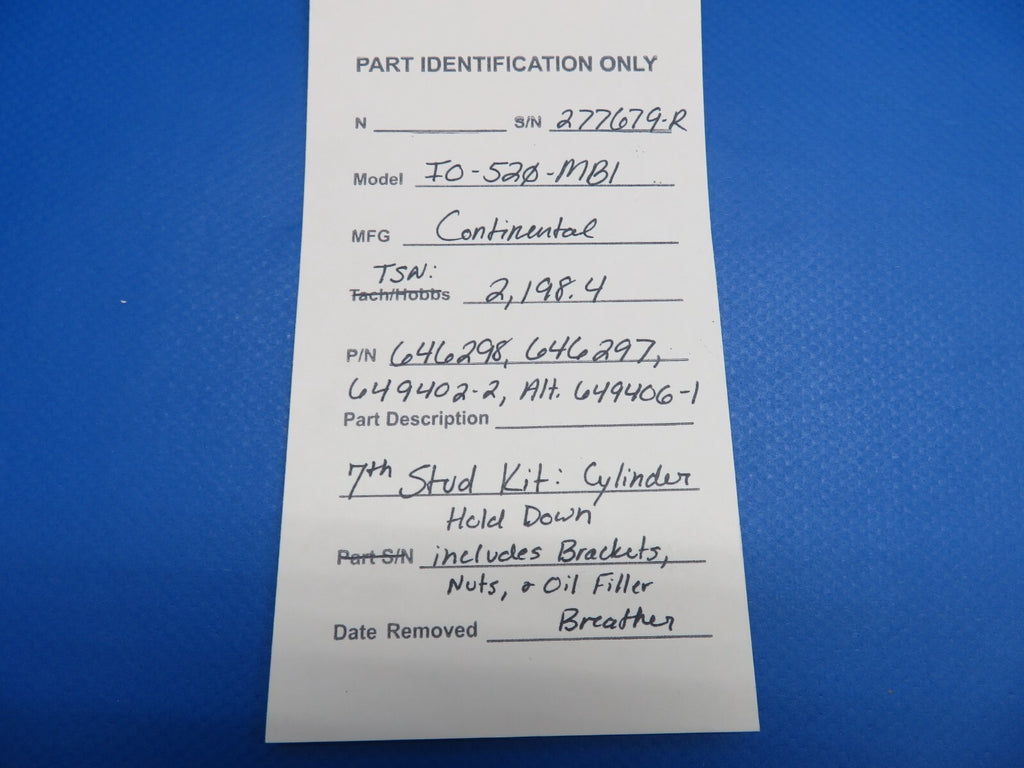 PART IDENTIFICATION ONLY
N S/N 277679-R
Model IO-520-MB1
MFG Continental
TSN:
Tach/Hobbs 2,198.4
P/N 646298, 646297,
649402-2, Alt. 649406-1
Part Description
7th Stud Kit: Cylinder
Hold Down
Part S/N includes Brackets,
Nuts, & Oil Filler
Breather
Date Removed